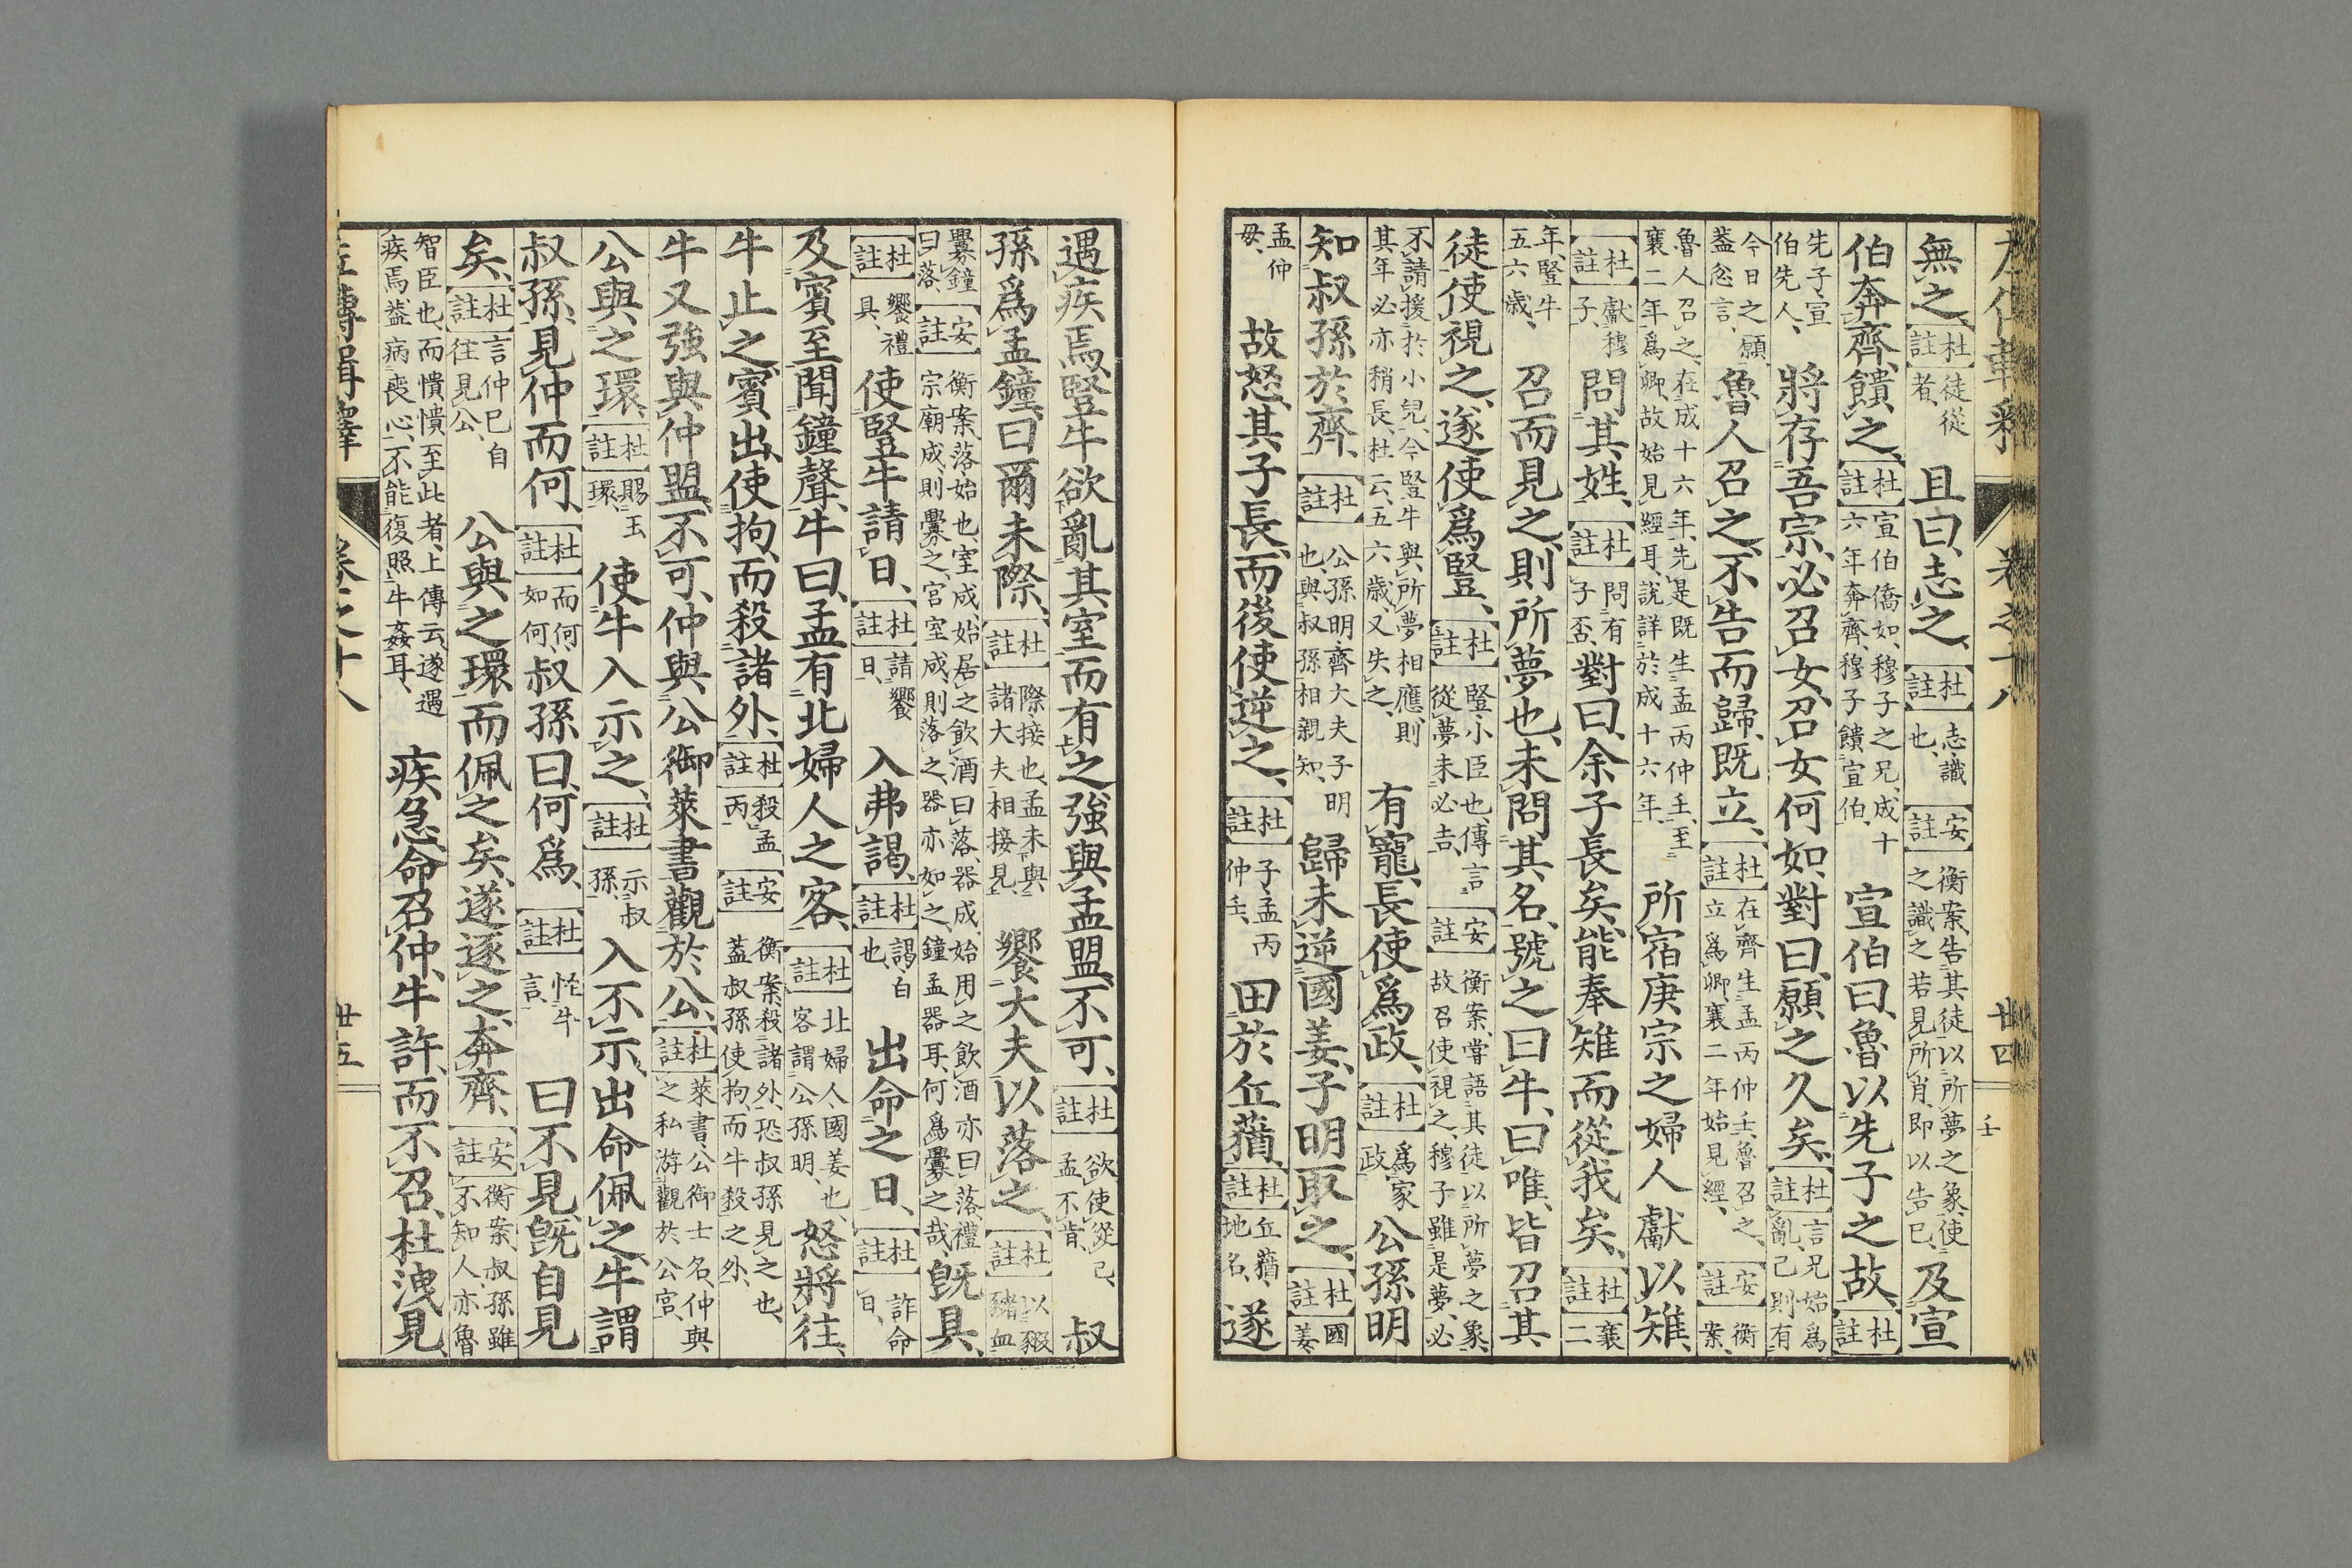 無之、杜註徒從者、且曰、志之、杜註志、識也、安註衡案、告其徒以所夢之象、使之識之、若見所肖、即以告已、及宣
伯奔齊、饋之、杜註宣伯僑如、穆子之兄、成十六年奔齊、穆子饋宣伯、宣伯曰、魯以先子之故、杜註
先子、宣伯先人、將存吾宗、必召女、召女何如、對曰、願之久矣、杜註言兄始爲亂、己則有
今日之願、蓋忿言、魯人召之、不告而歸、既立、杜註在齊生孟丙仲壬、魯召之、立爲卿、襄二年始見經、安註衡案、
魯人召之、在成十六年、先是既生孟丙仲壬、至襄二年爲卿、故始見經耳、說詳於成十六年、所宿庚宗之婦人獻以雉、
杜註獻穆子、問其姓、杜註問有子否、對曰、余子長矣、能奉雉而從我矣、杜註襄二
年、豎牛五六歲、召而見之、則所夢也、未問其名、號之曰牛、曰唯、皆召其
徒使視之、遂使爲豎、杜註豎小臣也、傳言從夢未必吉、安註衡案、嘗語其徒以所夢之象、故召使視之、穆子雖是夢、必
不請援於小兒、今豎牛與所夢相應、則其年必亦稍長、杜云、五六歲、又失之、有寵、長使爲政、杜註爲家政、公孫明
知叔孫於齊、杜註公孫明齊大夫子明也、與叔孫相親知、歸未逆國姜、子明取之、杜註國姜
孟仲母、故怒、其子長、而後使逆之、杜註子、孟丙仲壬、田於丘蕕、杜註丘蕕、地名、遂
卷之十八 廿四 壬
遇疾焉、豎牛欲亂其室而有之、強與孟盟、不可、杜註欲使從己、孟不肯、叔
孫爲孟鐘、曰爾未際、杜註際、接也、孟未與諸大夫相接見、饗大夫以落之、杜註以豭豬血
釁鐘曰落、安註衡案、落始也、室成、始居之飲酒曰落、器成、始用之飲酒亦曰落、禮宗廟成、則釁之、宮室成、則落之、器亦如之、鐘孟器耳、何爲釁之哉、既具、
杜註饗禮具、使豎牛請日、杜註請饗日、入弗謁、杜註謁、白也、出命之日、杜註詐命日、
及賓至聞鐘聲、牛曰、孟有北婦人之客、杜註北婦人、國姜也、客謂公孫明、怒將往、
牛止之、賓出、使拘而殺諸外、杜註殺孟丙、安註衡案、殺諸外、恐叔孫見之也、蓋叔孫使拘、而牛殺之外、
牛又強與仲盟、不可、仲與公御萊書觀於公、杜註萊書、公御士名、仲與之私游觀於公宮、
公與之環、杜註賜玉環、使牛入示之、杜註示叔孫、入不示、出命佩之、牛謂
叔孫、見仲而何、杜註而何、如何、叔孫曰、何爲、杜註怪牛言、曰不見、既自見
矣、杜註言仲已自往見公、公與之環、而佩之矣、遂逐之、奔齊、安註衡案、叔孫雖不知人、亦魯
智臣也、而憒憒至此者、上傳云、遂遇疾焉、蓋病喪心、不能復照牛姦耳、疾急、命召仲、牛許而不召、杜洩見、
左傳輯釋 卷之十八 廿五